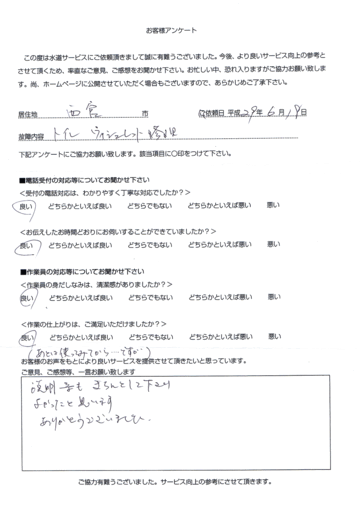 お客様アンケート
この度は水道サービスにご依頼頂きまして誠に有難うございました。今後、より良いサービス向上の参考と
させて頂くため、率直なご意見、ご感想をお聞かせ下さい。お忙しい中、恐れ入りますがご協力お願い致しま
す。尚、ホームページに公開させていただく場合もございますので、あらかじめご了承下さい。
居住地 西宮 市 ご依頼日 平成 29年 6月 19日
故障内容 トイレ ウォシュレット修理
下記アンケートにご協力お願い致します。該当項目に○印をつけて下さい。
■電話受付の対応等についてお聞かせ下さい
<受付の電話対応は、わかりやすく丁寧な対応でしたか?>
良い どちらかといえば良い どちらでもない どちらかといえば悪い 悪い
<お伝えしたお時間どおりにお伺いすることができていましたか?>
良い どちらかといえば良い どちらでもない どちらかといえば悪い 悪い
■作業員の対応等についてお聞かせ下さい
<作業員の身だしなみは、清潔感がありましたか?>
良い どちらかといえば良い どちらでもない どちらかといえば悪い 悪い
<作業の仕上がりは、ご満足いただけましたか?>
良い どちらかといえば良い どちらでもない どちらかといえば悪い 悪い
(あとは使ってみてから…ですが)
お客様のお声をもとにより良いサービスを提供させて頂きたいと思っています。
ご意見、ご感想等、一言お願い致します
説明等も きちんとして下さり
よかったこと 思います
ありがとうございました。
ご協力有難うございました。サービス向上の参考にさせて頂きます。